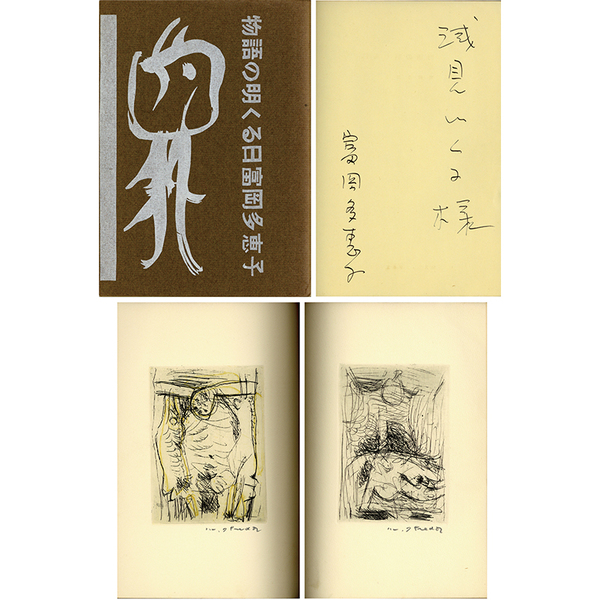 物語の明くる日富岡多恵子
浅見いく子様
富岡多恵子